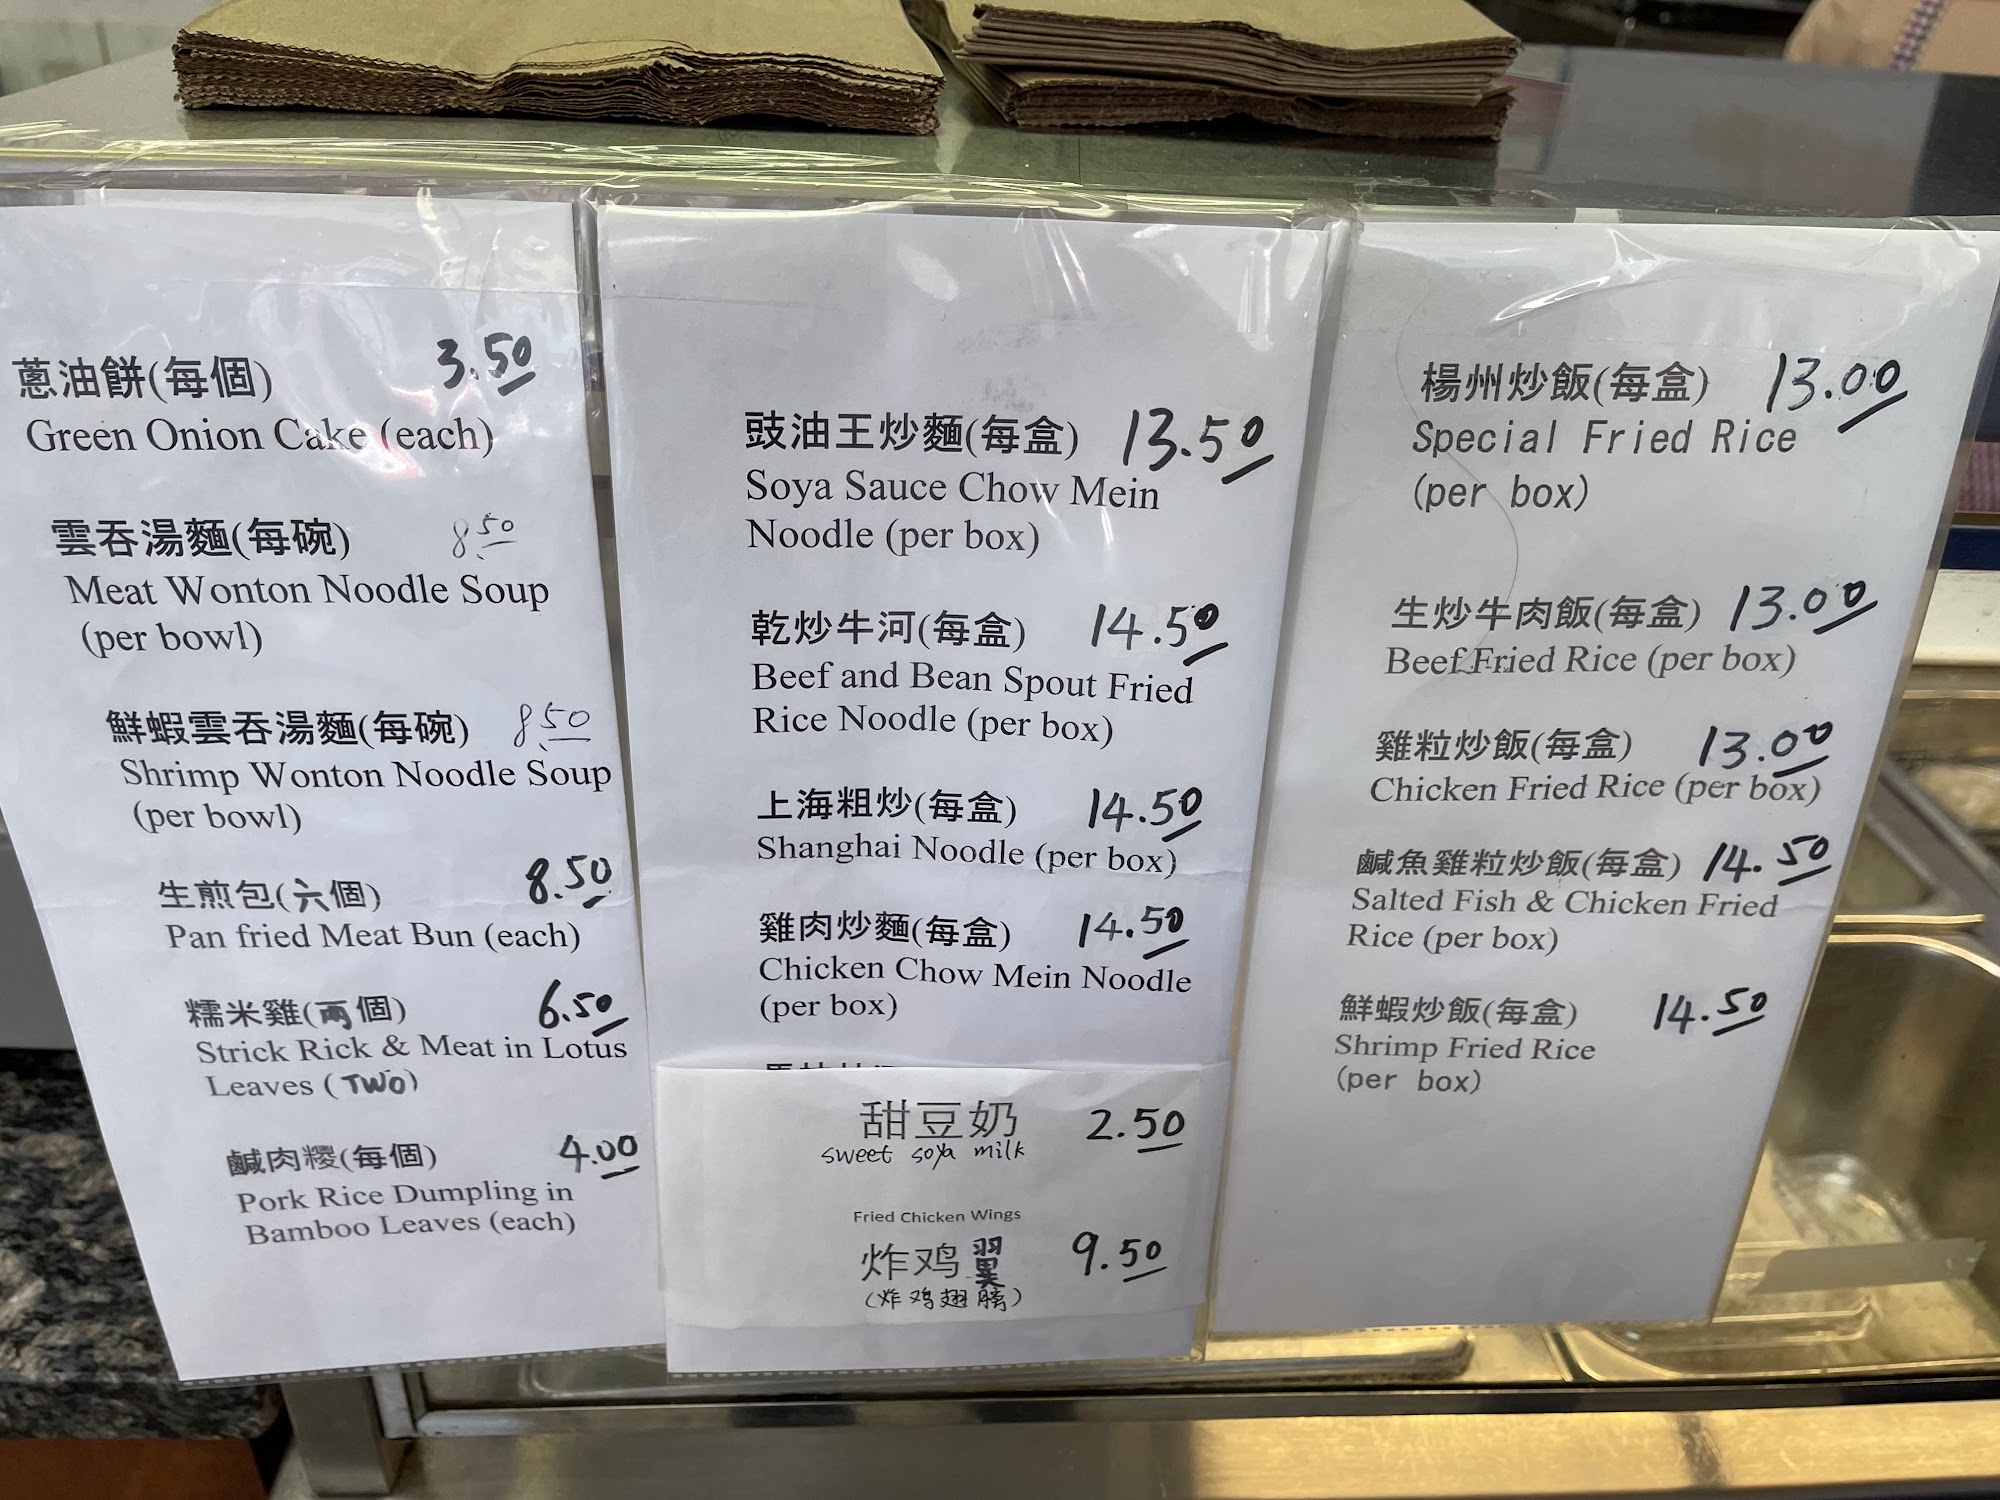 蔥油餅(每個) 3.50
Green Onion Cake (each)
雲吞湯麵(每碗) 8.50
Meat Wonton Noodle Soup
(per bowl)
鮮蝦雲吞湯麵(每碗) 8.50
Shrimp Wonton Noodle Soup
(per bowl)
生煎包(六個) 8.50
Pan fried Meat Bun (each)
糯米雞(兩個) 6.50
Strick Rick & Meat in Lotus
Leaves (TWO)
鹹肉糭(每個) 4.00
Pork Rice Dumpling in
Bamboo Leaves (each)
豉油王炒麵(每盒) 13.50
Soya Sauce Chow Mein
Noodle (per box)
乾炒牛河(每盒) 14.50
Beef and Bean Spout Fried
Rice Noodle (per box)
上海粗炒(每盒) 14.50
Shanghai Noodle (per box)
雞肉炒麵(每盒) 14.50
Chicken Chow Mein Noodle
(per box)
甜豆奶 2.50
sweet soya milk
Fried Chicken Wings
炸鸡翼 9.50
(炸鸡翅膀)
楊州炒飯(每盒) 13.00
Special Fried Rice
(per box)
生炒牛肉飯(每盒) 13.00
Beef Fried Rice (per box)
雞粒炒飯(每盒) 13.00
Chicken Fried Rice (per box)
鹹魚雞粒炒飯(每盒) 14.50
Salted Fish & Chicken Fried
Rice (per box)
鮮蝦炒飯(每盒) 14.50
Shrimp Fried Rice
(per box)